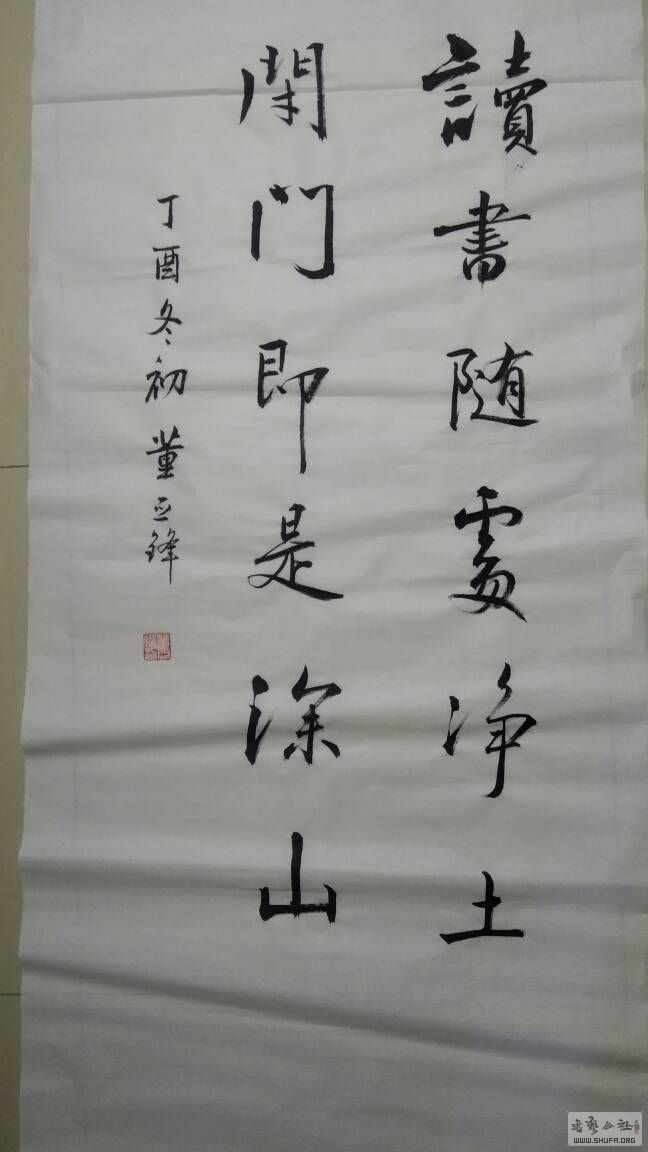 讀書随處净土
閉門即是深山
丁酉冬初 董正鋒
書藝公社
WWW.SHUFA.ORG